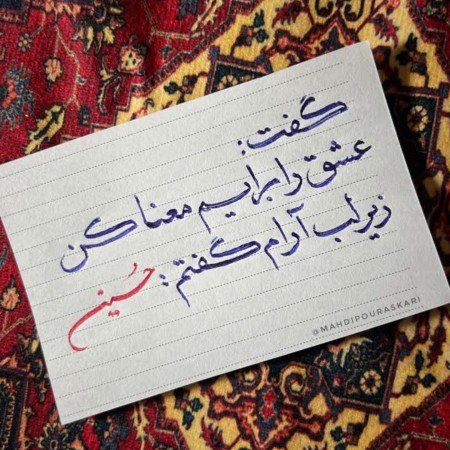 گفت:
عشق را برایم معنا کن
زیر لب آرام گفتم: حُسین
@MAHDIPOURASKARI